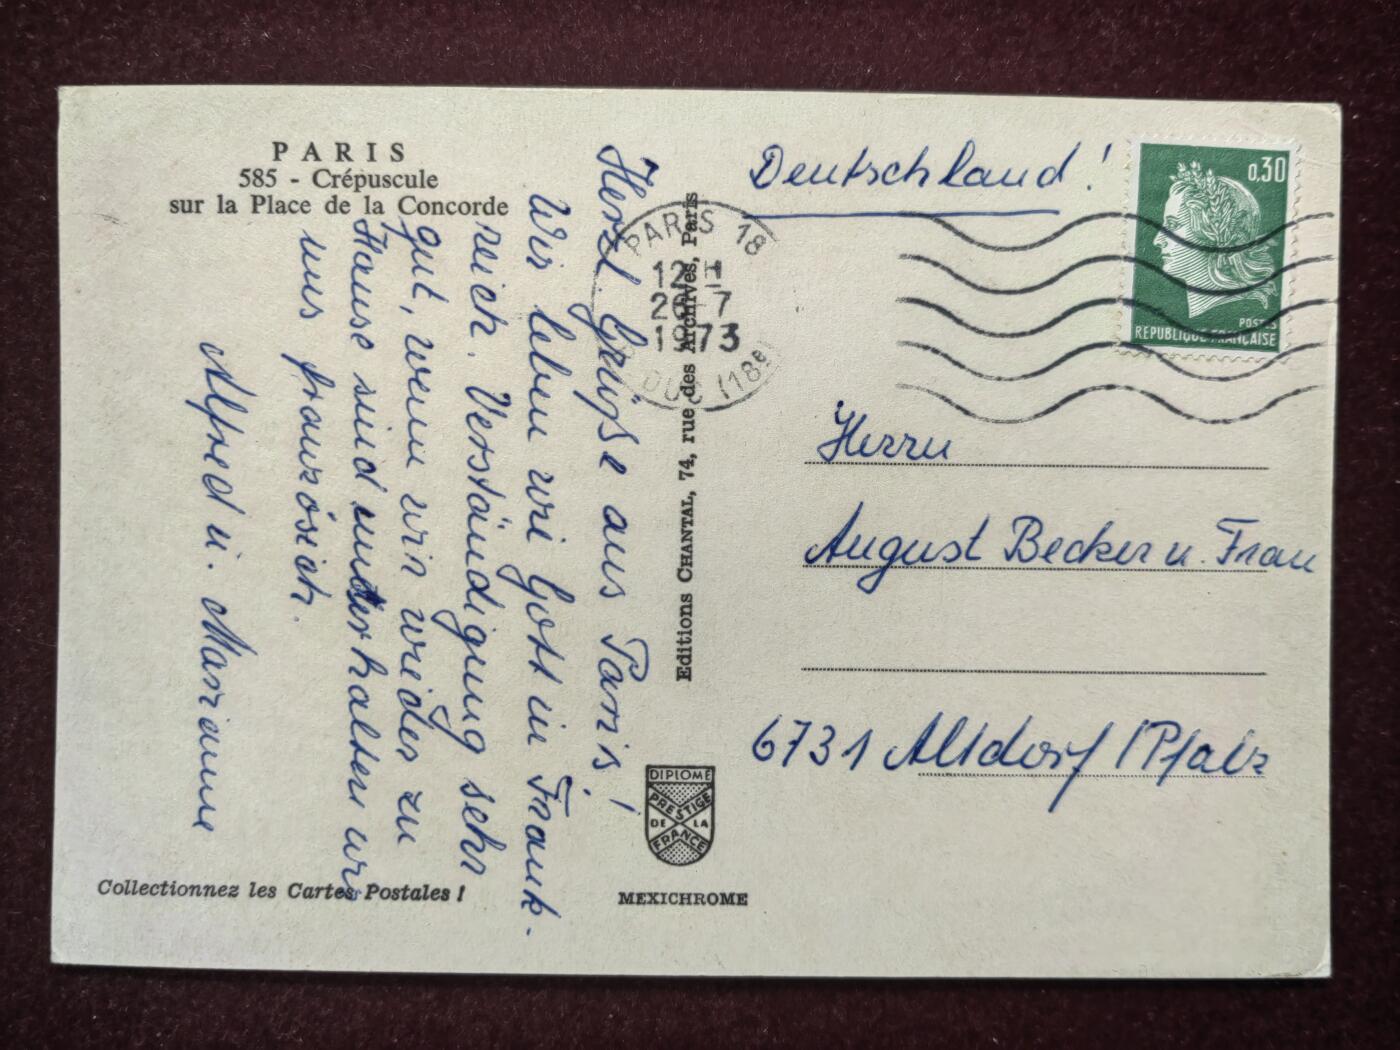 PARIS
585 - Crépuscule
sur la Place de la Concorde
Herzl. Grüße aus Paris!
Wir leben wie Gott in Frank-
reich. Verständigung sehr
gut, wenn wir wieder zu
Hause sind unterhalten wir
uns französich.
Alfred u. Marianne
Collectionnez les Cartes Postales !
Editions CHANTAL, 74, rue des Archives, Paris
PARIS 18
12 H
26-7
1973
DUC (18e)
DIPLOME
PRESTIGE
DE LA
FRANCE
MEXICHROME
Deutschland!
0,30
POSTES
REPUBLIQUE FRANÇAISE
Herrn
August Becker u. Frau
6731 Altdorf /Pfalz